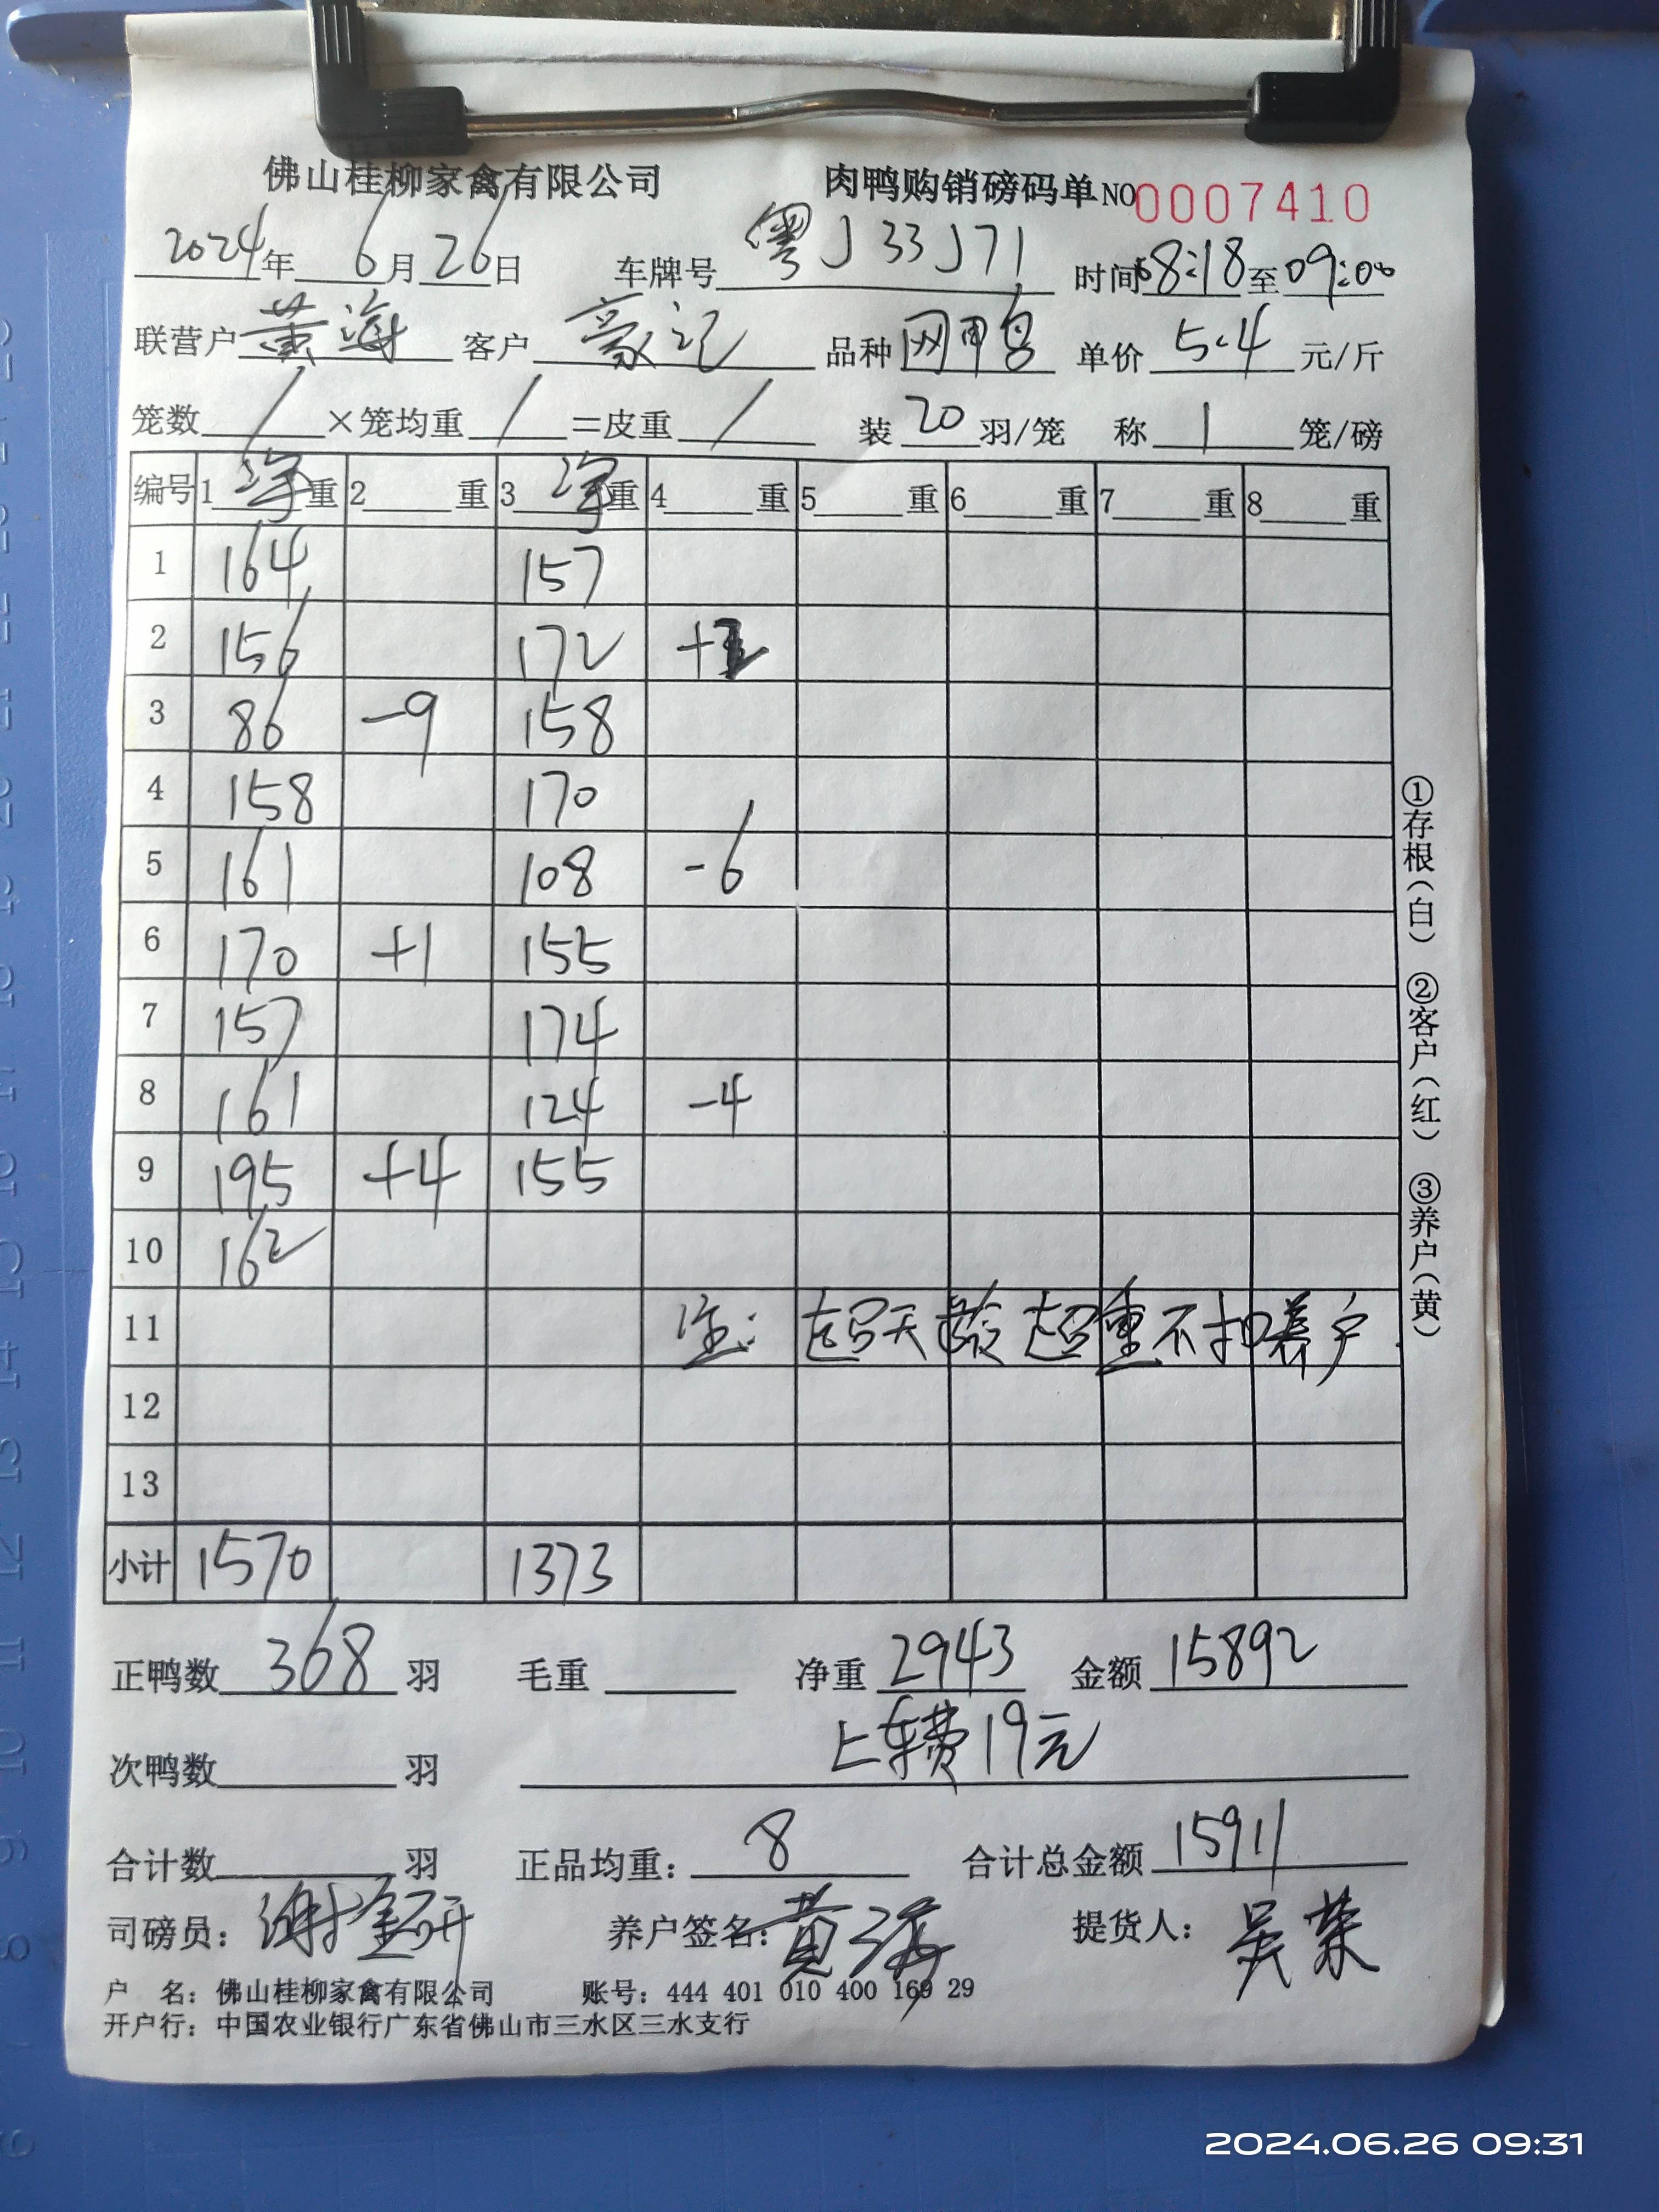 佛山桂柳家禽有限公司 肉鸭购销磅码单 NO 0007410
2024年 6月26日 车牌号 粤J33J71 时间 08:18 至 09:00
联营户 黄海 客户 豪记 品种 网鸭 单价 5.4 元/斤
笼数 / ×笼均重 / =皮重 / 装 20 羽/笼 称 1 笼/磅
编号 1 净 重 2 重 3 净 重 4 重 5 重 6 重 7 重 8 重
1 164 157
2 156 172
3 86 -9 158
4 158 170
5 161 108 -6
6 170 +1 155
7 157 174
8 161 124 -4
9 195 +4 155
10 162
11 注: 超天龄超重不扣养户.
12
13
小计 1570 1373
正鸭数 368 羽 毛重 净重 2943 金额 15892
次鸭数 羽 上车费19元
合计数 羽 正品均重: 8 合计总金额 15911
司磅员: 养户签名: 黄海 提货人: 吴荣
户 名: 佛山桂柳家禽有限公司 账号: 444 401 010 400 169 29
开户行: 中国农业银行广东省佛山市三水区三水支行
①存根(白) ②客户(红) ③养户(黄)
2024.06.26 09:31